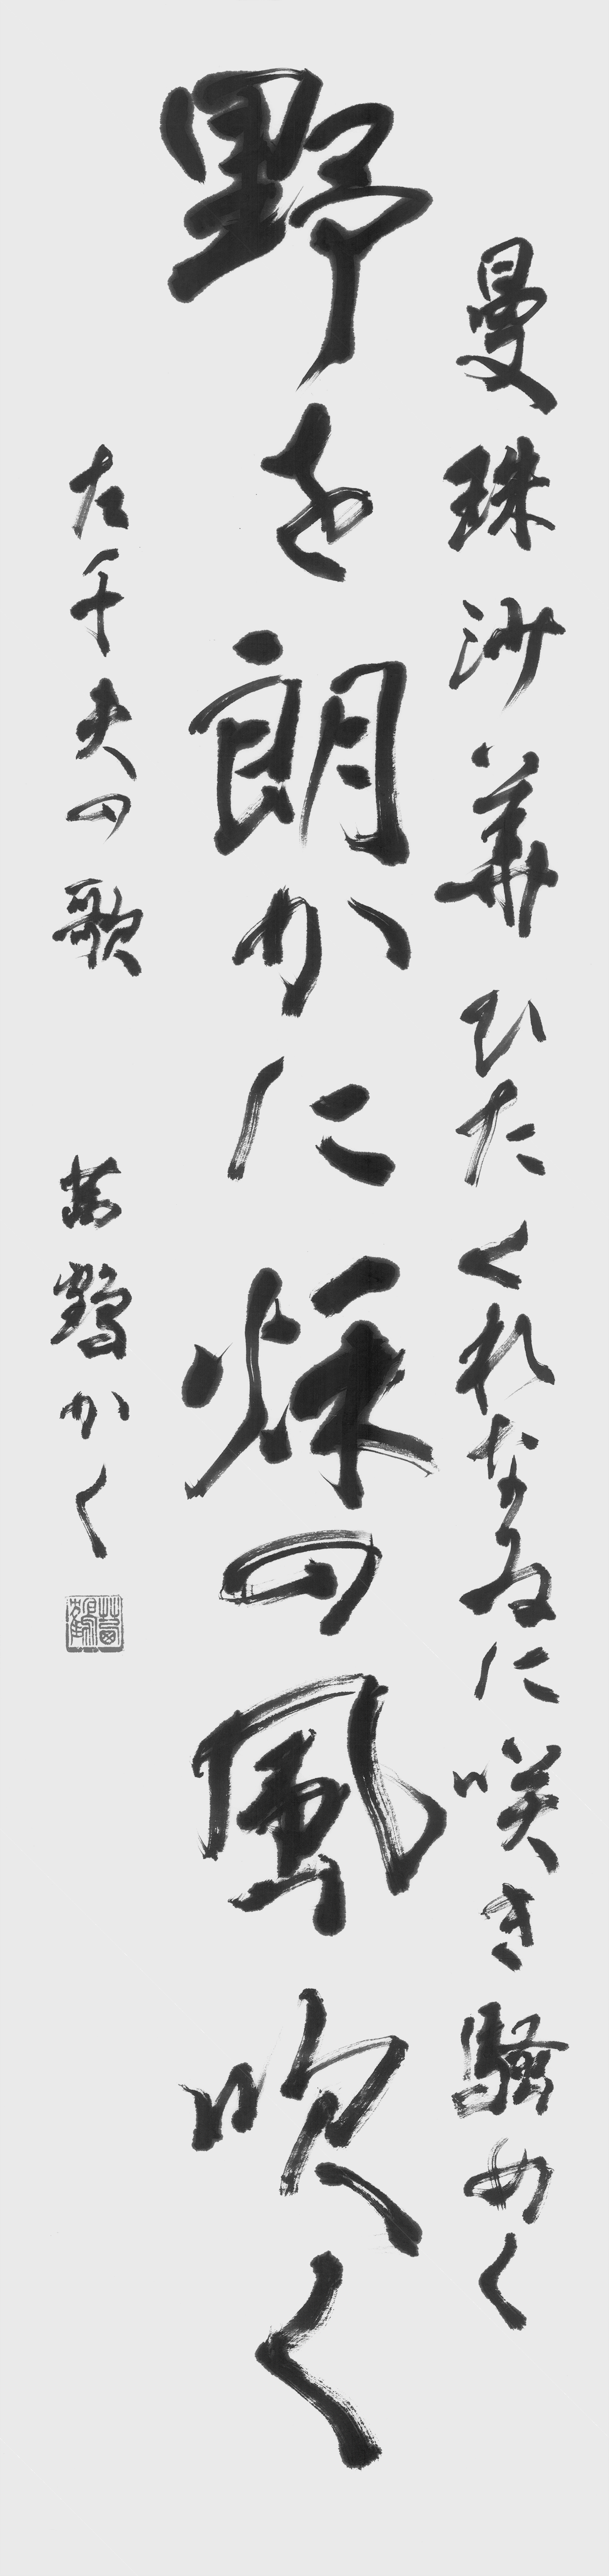 曼珠沙華ひたくれなゐに咲き騒めく
野を朗かに秋の風吹く
左千夫の歌 鶴かく